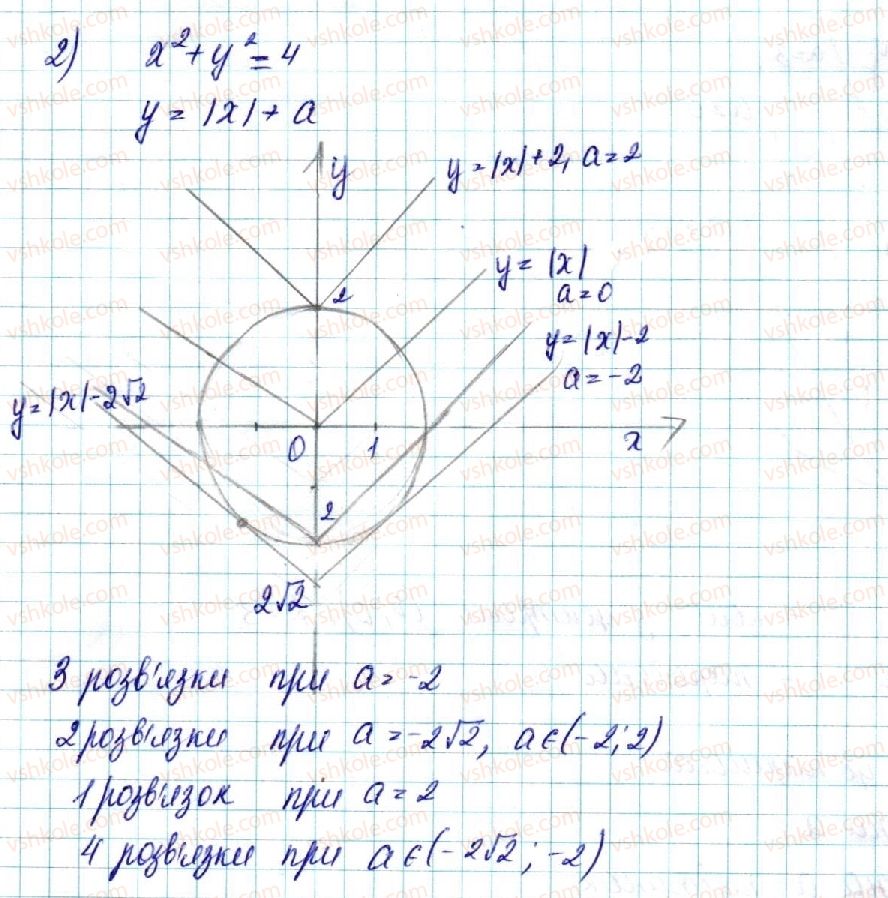 2) x² + y² = 4
y = |x| + a
y
y = |x| + 2, a = 2
y = |x|
a = 0
2
y = |x| - 2
a = -2
y = |x| - 2√2
0 1 x
2
2√2
3 розв'язки при a = -2
2 розв'язки при a = -2√2, a ∈ (-2; 2)
1 розв'язок при a = 2
4 розв'язки при a ∈ (-2√2; -2)
vshkole.com